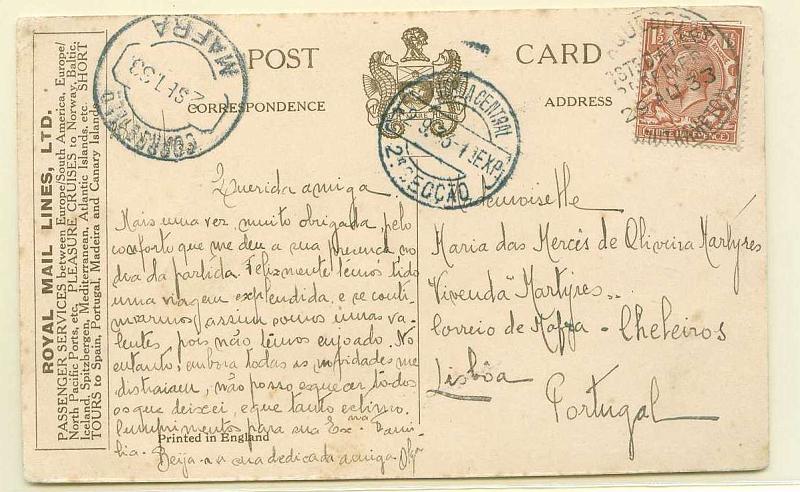 ROYAL MAIL LINES, LTD.
PASSENGER SERVICES between Europe/South America, Europe/
North Pacific Ports, etc. PLEASURE CRUISES to Norway, Baltic,
Iceland, Spitzbergen, Mediterranean, Atlantic Islands, etc. SHORT
TOURS to Spain, Portugal, Madeira and Canary Islands
POST CARD
CORRESPONDENCE
ADDRESS
MAFRA
2 SET. 33
CORREIO
CENTRAL
2ª SECÇÃO
29 AU 33
Querida amiga.
Mais uma vez, muito obrigada, pelo
conforto que me deu a sua presença no
dia da partida. Felizmente temos tido
uma viagem explendida, e se conti-
nuarmos assim somos umas va-
lentes, pois não temos enjoado. No
entanto, embora todas as novidades me
distraiam, não posso esquecer todos
os que deixei, e que tanto estimo.
Cumprimentos para sua Exma Fami-
lia. Beija-a a sua dedicada amiga Olga
Printed in England
Mademoiselle
Maria das Mercês de Oliveira Martyres
Vivenda Martyres..
Correio de Mafra - Cheleiros
Lisbôa
Portugal